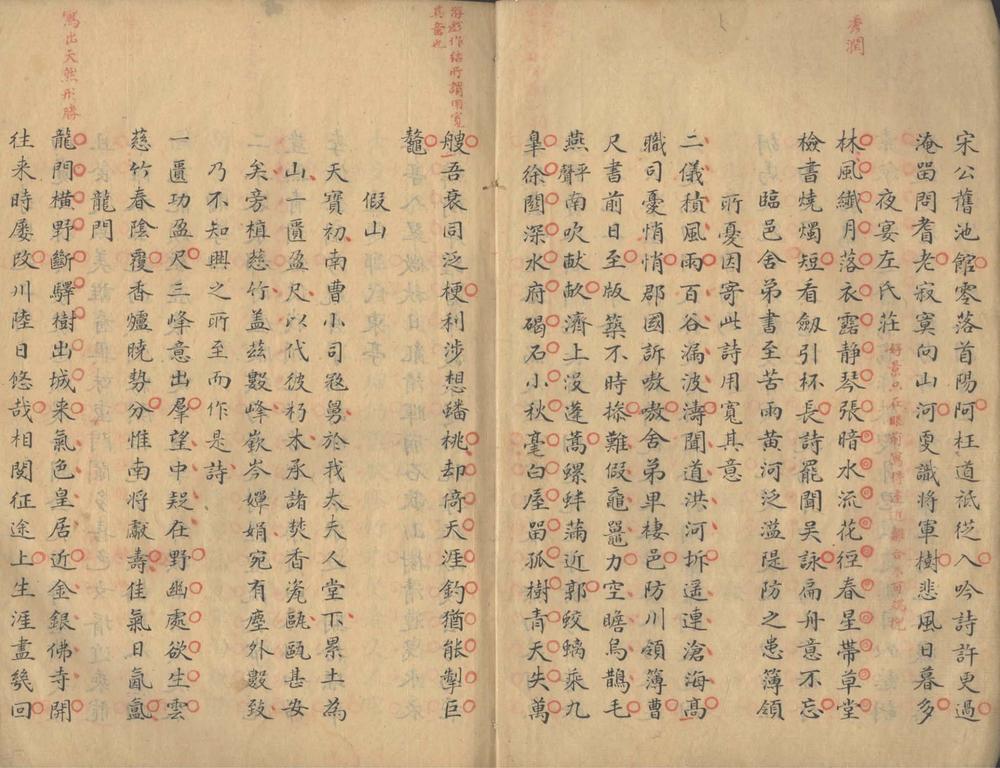 秀潤
宋公舊池館零落首陽阿枉道祇從入吟詩許更過
淹留問耆老寂寞向山河更識將軍樹悲風日暮多
夜宴左氏莊
林風纖月落衣露静琴張暗水流花徑春星帶草堂
檢書燒燭短看劒引杯長詩罷聞吴詠扁舟意不忘
臨邑舍弟書至苦雨黄河泛溢隄防之患簿領
所憂因寄此詩用寬其意
二儀積風雨百谷漏波濤聞道洪河坼遥連滄海髙
職司憂悄悄郡國訴嗷嗷舍弟卑棲邑防川領簿曹
尺書前日至版築不時操難假黿鼉力空瞻烏鵲毛
燕平聲南吹畎畝濟上没蓬蒿螺蚌滿近郭蛟螭乘九
臯徐關深水府碣石小秋毫白屋留孤樹青天失萬
游戲作結所謂用寬
其意也
艘吾衰同泛梗利涉想蟠桃却倚天涯釣猶能掣巨
鼇
假山
天寶初南曹小司宼舅於我太夫人堂下累土為
山一匱盈尺以代彼朽木承諸焚香瓷甌甌甚安
二矣旁植慈竹盖兹數峰嶔岑嬋娟宛有塵外數致
乃不知興之所至而作是詩
一匱功盈尺三峰意出羣望中疑在野幽處欲生雲
慈竹春陰覆香爐曉勢分惟南將獻壽佳氣日氤氲
龍門
龍門横野斷驛樹出城来氣色皇居近金銀佛寺開
往来時屢改川陸日悠哉相閱征途上生涯盡幾回
寫出天然形勝